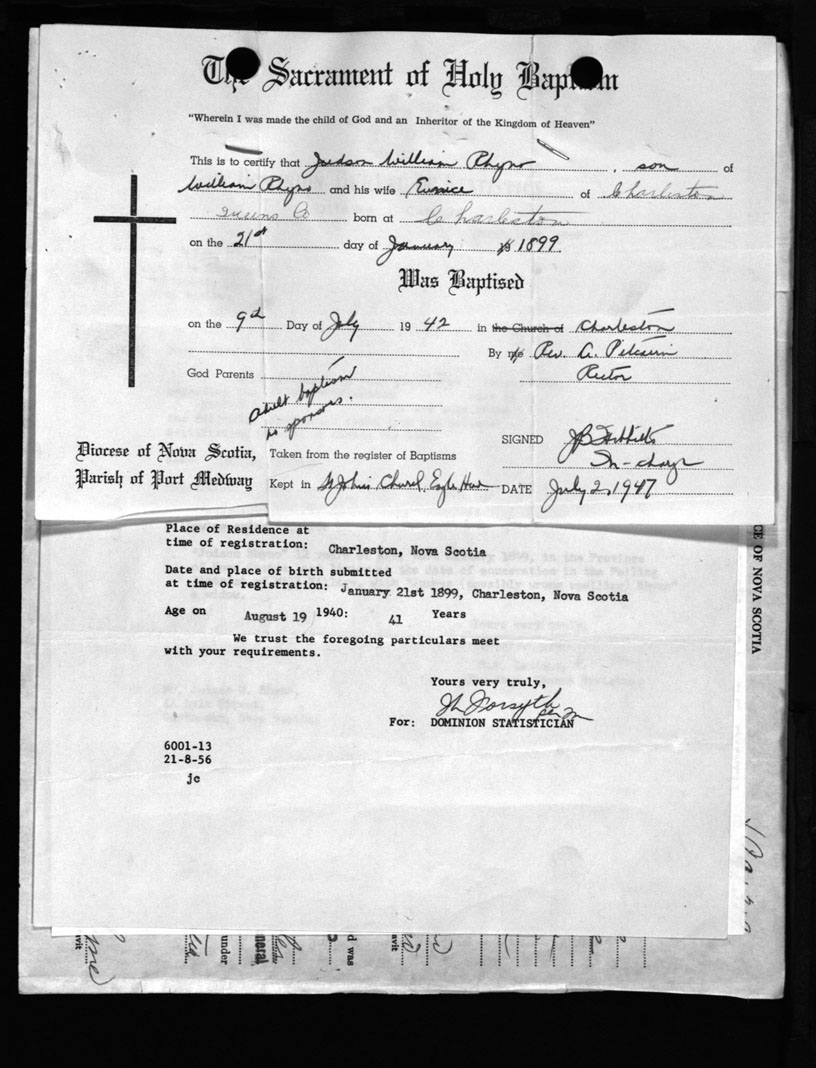 The Sacrament of Holy Baptism
"Wherein I was made the child of God and an Inheritor of the Kingdom of Heaven"
This is to certify that Judson William Rhyno, son of
William Rhyno and his wife Eunice of Charleston
Queens Co born at Charleston
on the 21st day of January 1899
Was Baptised
on the 9th Day of July 1942 in the Church of Charleston
By me Rev. A.
Rector
God Parents
Adult baptism
no sponsors.
Diocese of Nova Scotia,
Parish of Port Medway
SIGNED
In-charge
Taken from the register of Baptisms
Kept in St Johns Church, Eagle Head DATE July 2, 1947
Place of Residence at
time of registration: Charleston, Nova Scotia
Date and place of birth submitted
at time of registration: January 21st 1899, Charleston, Nova Scotia
Age on August 19 1940: 41 Years
We trust the foregoing particulars meet
with your requirements.
Yours very truly,
For: DOMINION STATISTICIAN
6001-13
21-8-56
jc
CE OF NOVA SCOTIA
under
d was